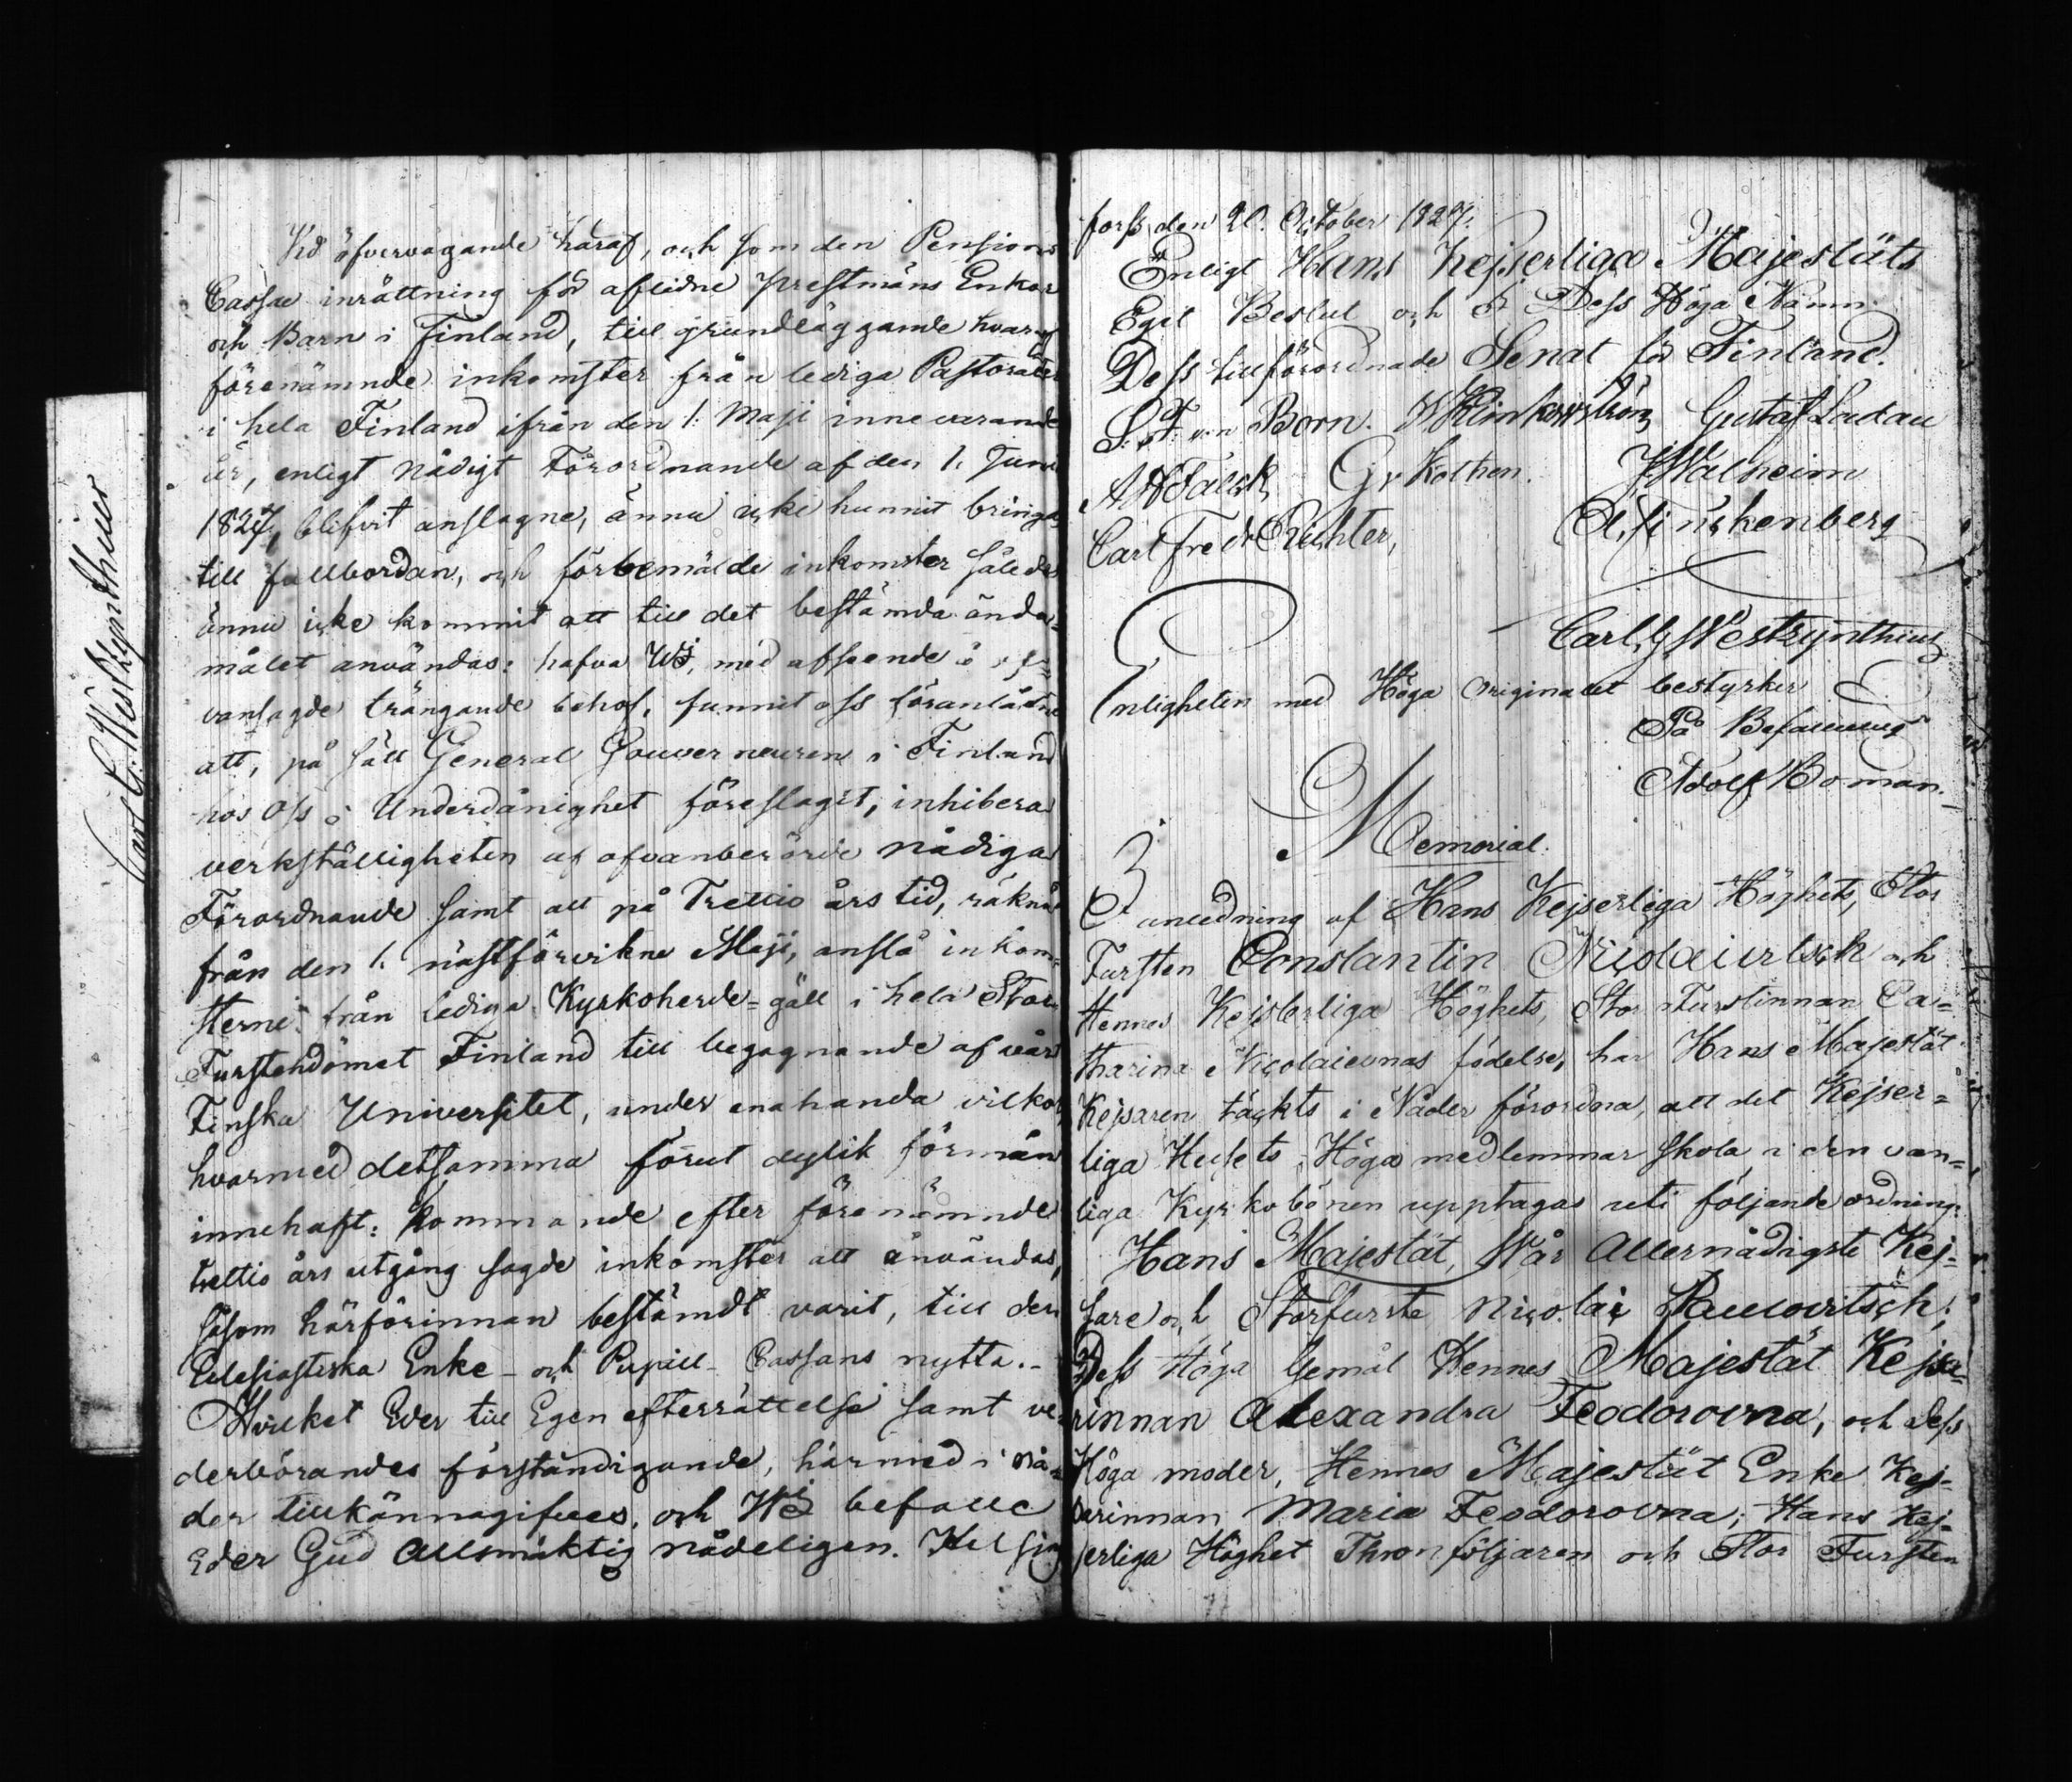 Vid öfvervägande häraf, och som den Pensions
Cassae inrättning för aflidne prestmäns Enkor
och Barn i Finland, till grundläggande hvaraf
förenämnde inkomster från lediga Pastorater
i hela Finland ifrån den 1. Maji innevarande
år, enligt Nådigt Förordnande af den 1. Junii
1827, blifvit anslagne, ännu icke hunnit bringas
till fullbordan, och förbemälde inkomster således
ännu icke kommit att till det bestämda ända-
målet användas: hafva Wij, med afseende å of-
vansagde trängande behof, funnit oss föranlåtne
att, på sätt General Gouverneuren i Finland
hos Oss i Underdånighet föreslagit, inhibera
verkställigheten af ofvanberörde nådiga
Förordnande samt att på Trettio års tid, räknadt
från den 1. nästförvikne Maji, anslå inkom-
sterne från lediga Kyrkoherde-gäll i hela Stor
Furstendömet Finland till begagnande af vårt
Finska Universitet, under enahanda vilkor,
hvarmed detsamma förut dylik förmån
innehaft: kommande efter förenämnde
trettio års utgång sagde inkomster att användas,
såsom härförinnan bestämdt varit, till den
Eclesiastiska Enke- och Pupill-Cassans nytta.-
Hvilket Eder till Egen efterrättelse samt ve-
derbörandes förständigande, härmed i nå-
der tillkännagifves, och Wi befalle
Eder Gud Allsmäktig nådeligen. Helsing
Carl G. Westzynthius
forss, den 20. October 1827.
Enligt Hans Kejserliga Majestäts
Eget Beslut och I Dess Höga Namn
Dess tillförordnade Senat för Finland.
S. F. von Born. Klinkowström Gustaf Ladau
A H Falck G v Kothen. J Walheim
Carl Fredr Richter, C. Finckenberg
Carl G Westzynthius
Enligheten med Höga Originalet bestyrker
På Befallning
Adolf Boman.
Memorial.
I anledning af Hans Kejserliga Höghets, Stor
Fursten Constantin Nicolaievitsch och
Hennes Kejserliga Höghets, Stor Furstinnan Ca-
tharina Nicolaievnas födelse, har Hans Majestät
Kejsaren täckts i Nåder förordna, att det Kejser-
liga Husets Höga medlemmar skola i den van-
liga Kyrkobönen upptagas uti följande ordning:
Hans Majestät, Vår Allernådigste Kej-
sare och Storfurste Nicolai Paulovitsch;
Dess Höga Gemål Hennes Majestät Kejsa-
rinnan Alexandra Feodorovna, och Dess
Höga moder, Hennes Majestät Enke Kej-
sarinnan Maria Feodorovna; Hans Kej-
serliga Höghet Thronföljaren och Stor Fursten